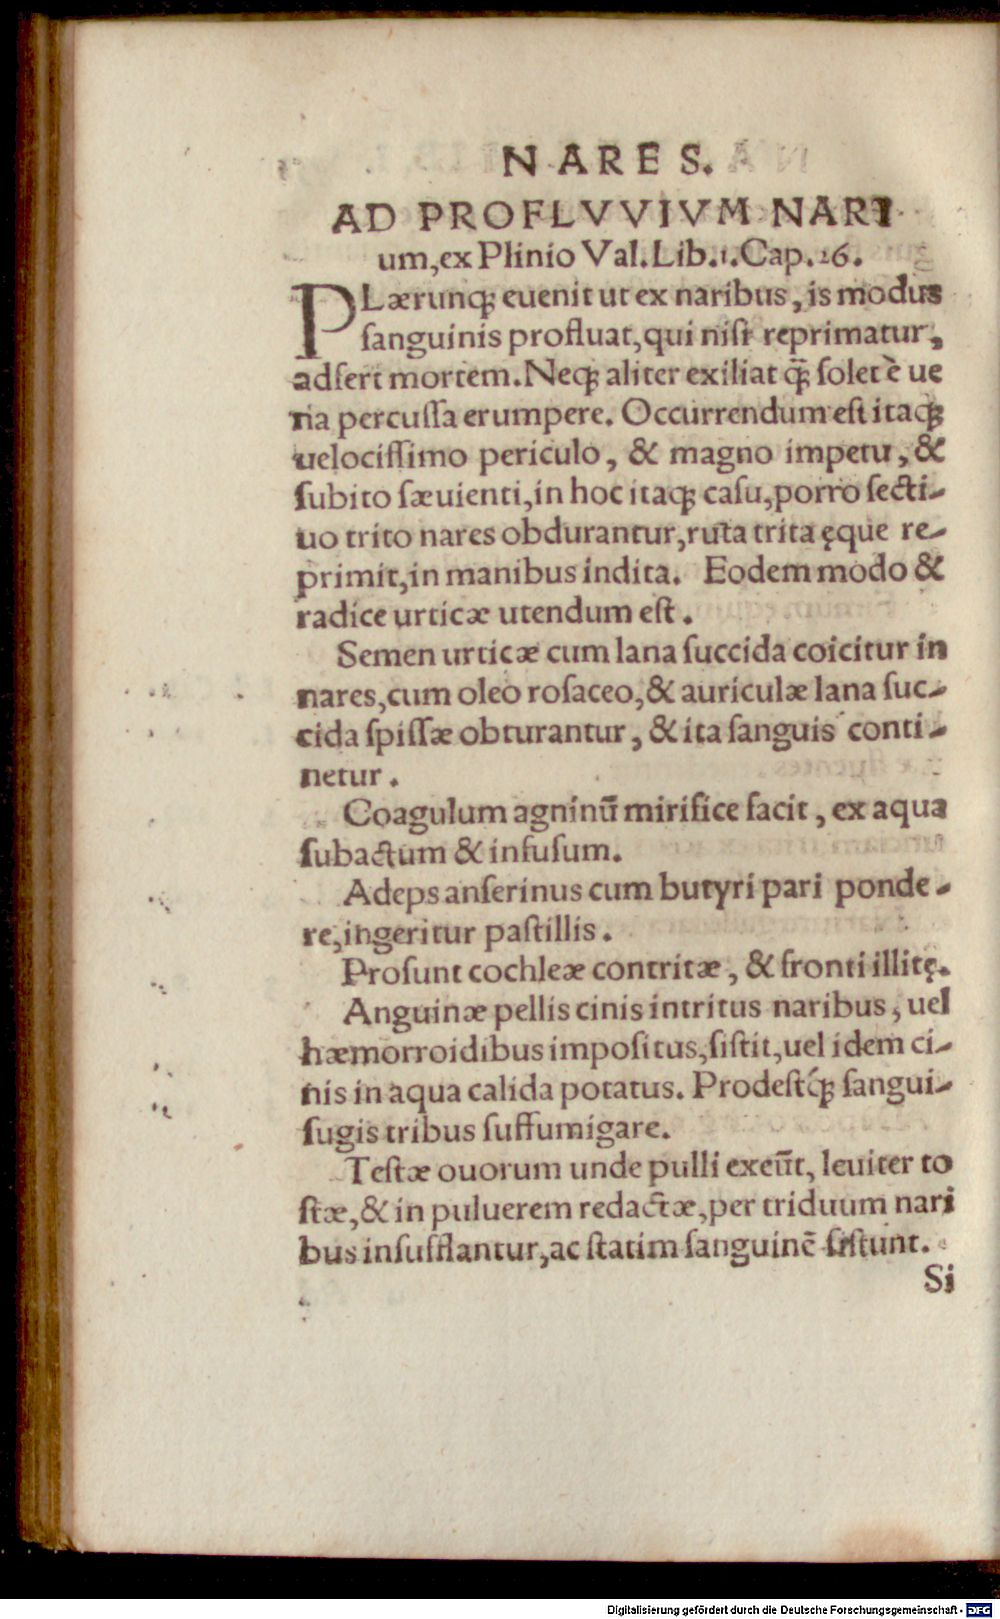 NARES.
AD PROFLVVIVM NARI
um,ex Plinio Val.Lib.1.Cap.26.
PLærunqꝫ euenit ut ex naribus, is modus
ſanguinis profluat,qui niſi reprimatur,
adfert mortem.Neqꝫ aliter exiliat q̄ꝫ ſolet è ue
na percuſſa erumpere. Occurrendum eſt itaqꝫ
uelociſſimo periculo, & magno impetu, &
ſubito ſæuienti,in hoc itaqꝫ caſu,porro ſecti-
uo trito nares obdurantur,ruta trita ęque re-
primit,in manibus indita. Eodem modo &
radice urticæ utendum eſt.
Semen urticæ cum lana ſuccida coicitur in
nares,cum oleo roſaceo,& auriculæ lana ſuc-
cida ſpiſſæ obturantur, & ita ſanguis conti-
netur.
Coagulum agninū mirifice facit, ex aqua
ſubactum & infuſum.
Adeps anſerinus cum butyri pari ponde-
re,ingeritur paſtillis.
Proſunt cochleæ contritæ, & fronti illitę.
Anguinæ pellis cinis intritus naribus, uel
hæmorroidibus impoſitus,ſiſtit,uel idem ci-
nis in aqua calida potatus. Prodeſtq́ꝫ ſangui-
ſugis tribus ſuffumigare.
Teſtæ ouorum unde pulli exeūt, leuiter to
ſtæ,& in puluerem redactæ,per triduum nari
bus inſufflantur,ac ſtatim ſanguinē ſiſtunt.
Si
Digitalisierung gefördert durch die Deutsche Forschungsgemeinschaft - DFG